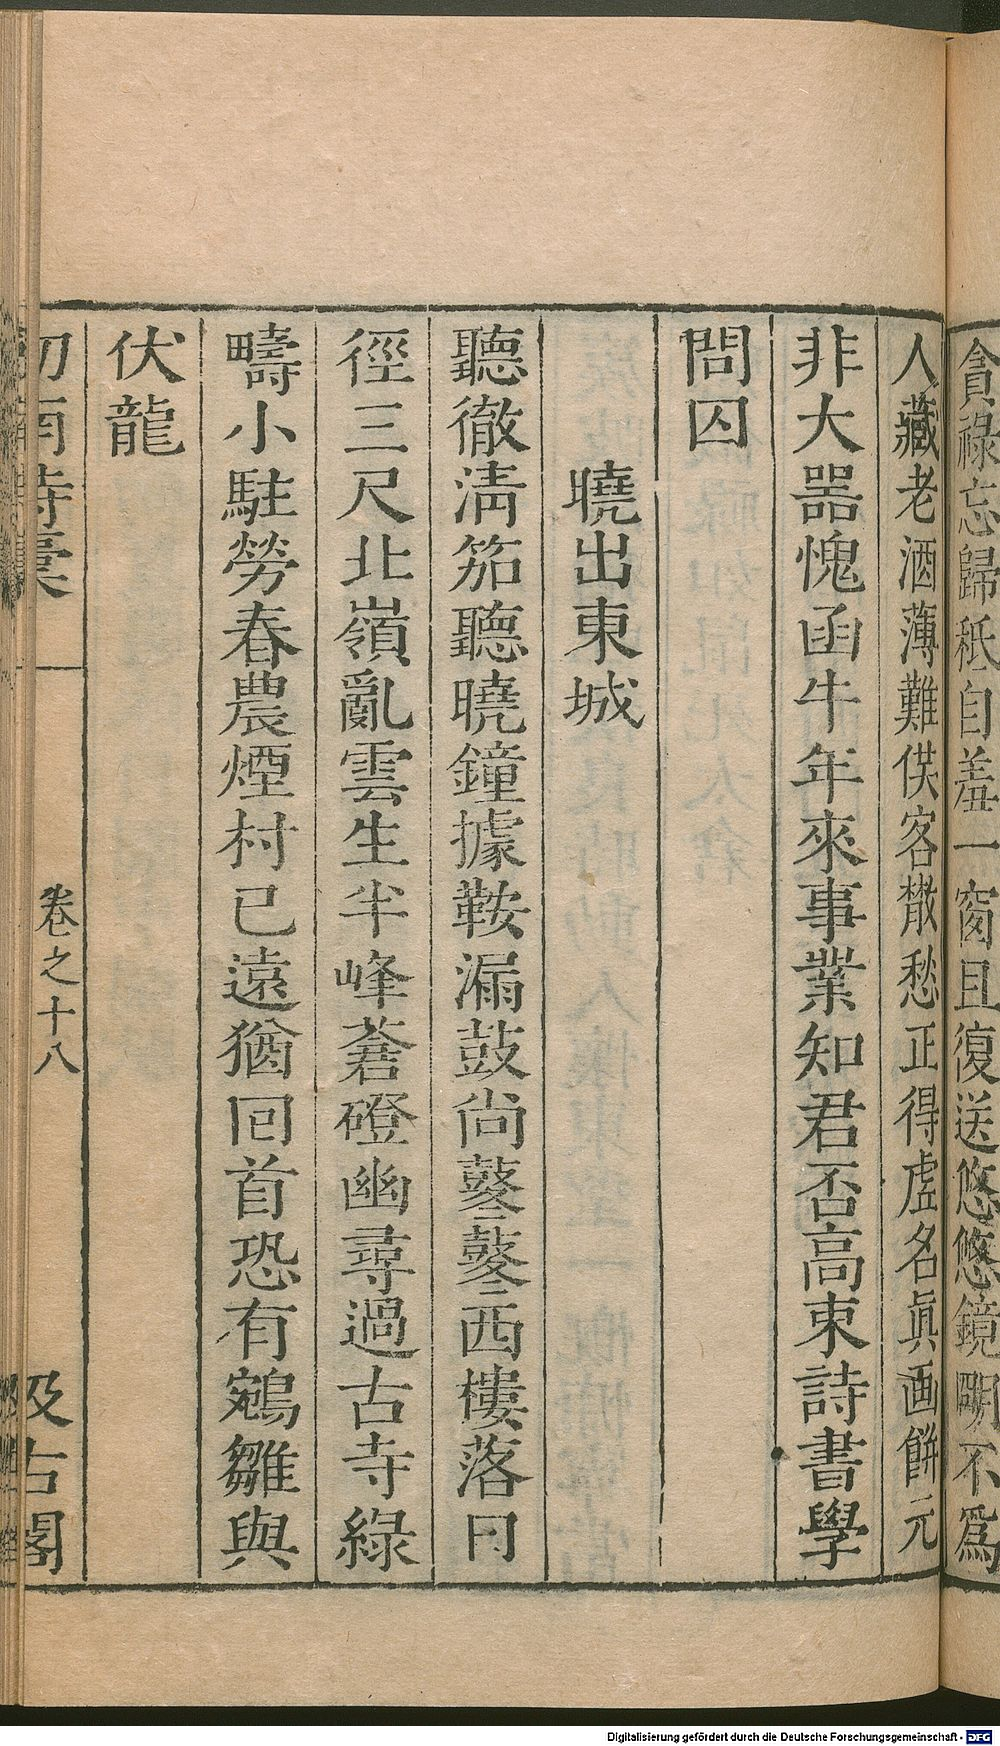 貪祿忘歸秖自羞一窗且復送悠悠鏡明不爲
人藏老酒薄難供客散愁正得虛名眞画餅元
非大器愧函牛年來事業知君否高束詩書學
問囚
曉出東城
聽徹淸笳聽曉鐘據鞍漏鼓尚鼕鼕西樓落月
徑三尺北嶺亂雲生半峰蒼磴幽尋過古寺綠
疇小駐勞春農煙村已遠猶回首恐有鵷雛與
伏龍
劍南詩稾
卷之十八
汲古閣
Digitalisierung gefördert durch die Deutsche Forschungsgemeinschaft - DFG